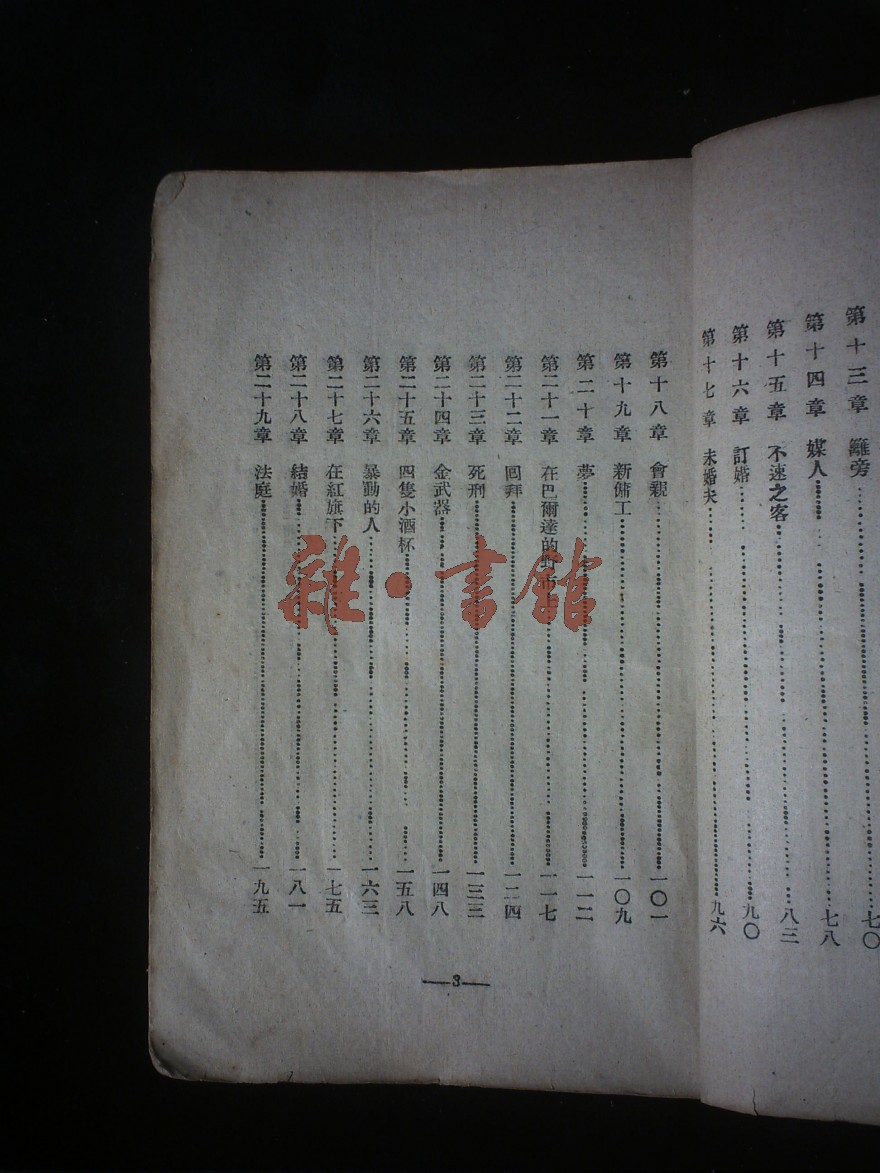 第十三章 籬旁 七〇
第十四章 媒人 七八
第十五章 不速之客 八三
第十六章 訂婚 九〇
第十七章 未婚夫 九六
第十八章 會親 一〇一
第十九章 新傭工 一〇九
第二十章 夢 一一二
第二十一章 在巴爾達的野市上 一一七
第二十二章 回拜 一二四
第二十三章 死刑 一三三
第二十四章 金武器 一四八
第二十五章 四隻小酒杯 一五八
第二十六章 暴動的人 一六三
第二十七章 在紅旗下 一七五
第二十八章 結婚 一八一
第二十九章 法庭 一九五
—3—
雜·書館